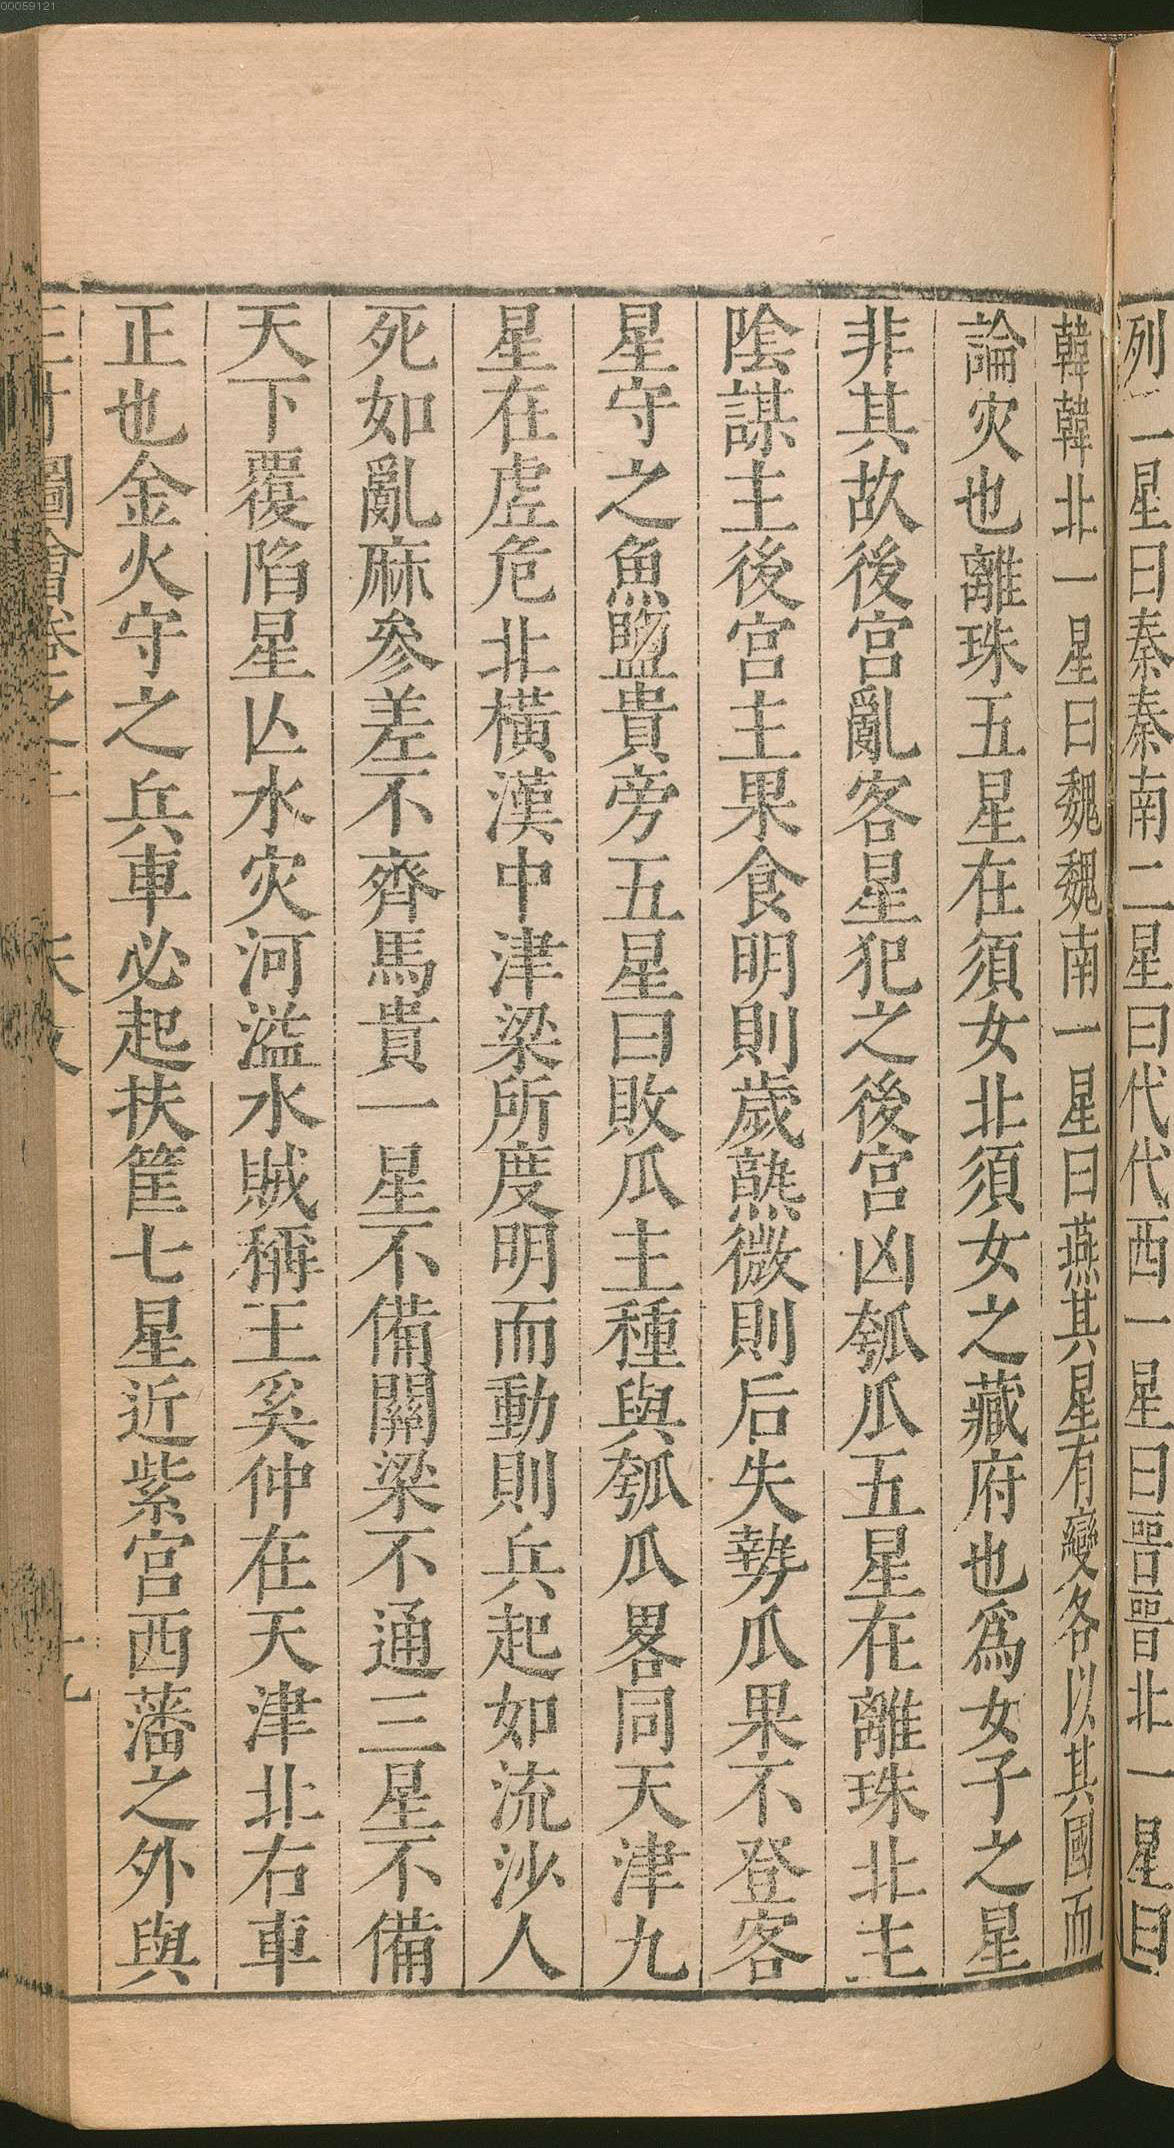 00059121
列一星曰秦秦南二星曰代代西一星曰晉晉北一星曰
韓韓北一星曰魏魏南一星曰燕其星有變各以其國而
論灾也離珠五星在須女北須女之藏府也為女子之星
非其故後宮亂客星犯之後宮凶瓠瓜五星在離珠北主
陰謀主後宮主果食明則歲熟微則后失勢瓜果不登客
星守之魚鹽貴旁五星曰敗瓜主種與瓠瓜畧同天津九
星在虛危北橫漢中津梁所度明而動則兵起如流沙人
死如亂麻參差不齊馬貴一星不備關梁不通三星不備
天下覆陷星亾水灾河溢水賊稱王奚仲在天津北右車
正也金火守之兵車必起扶筐七星近紫宮西藩之外與
三才圖會卷之 天文 十九